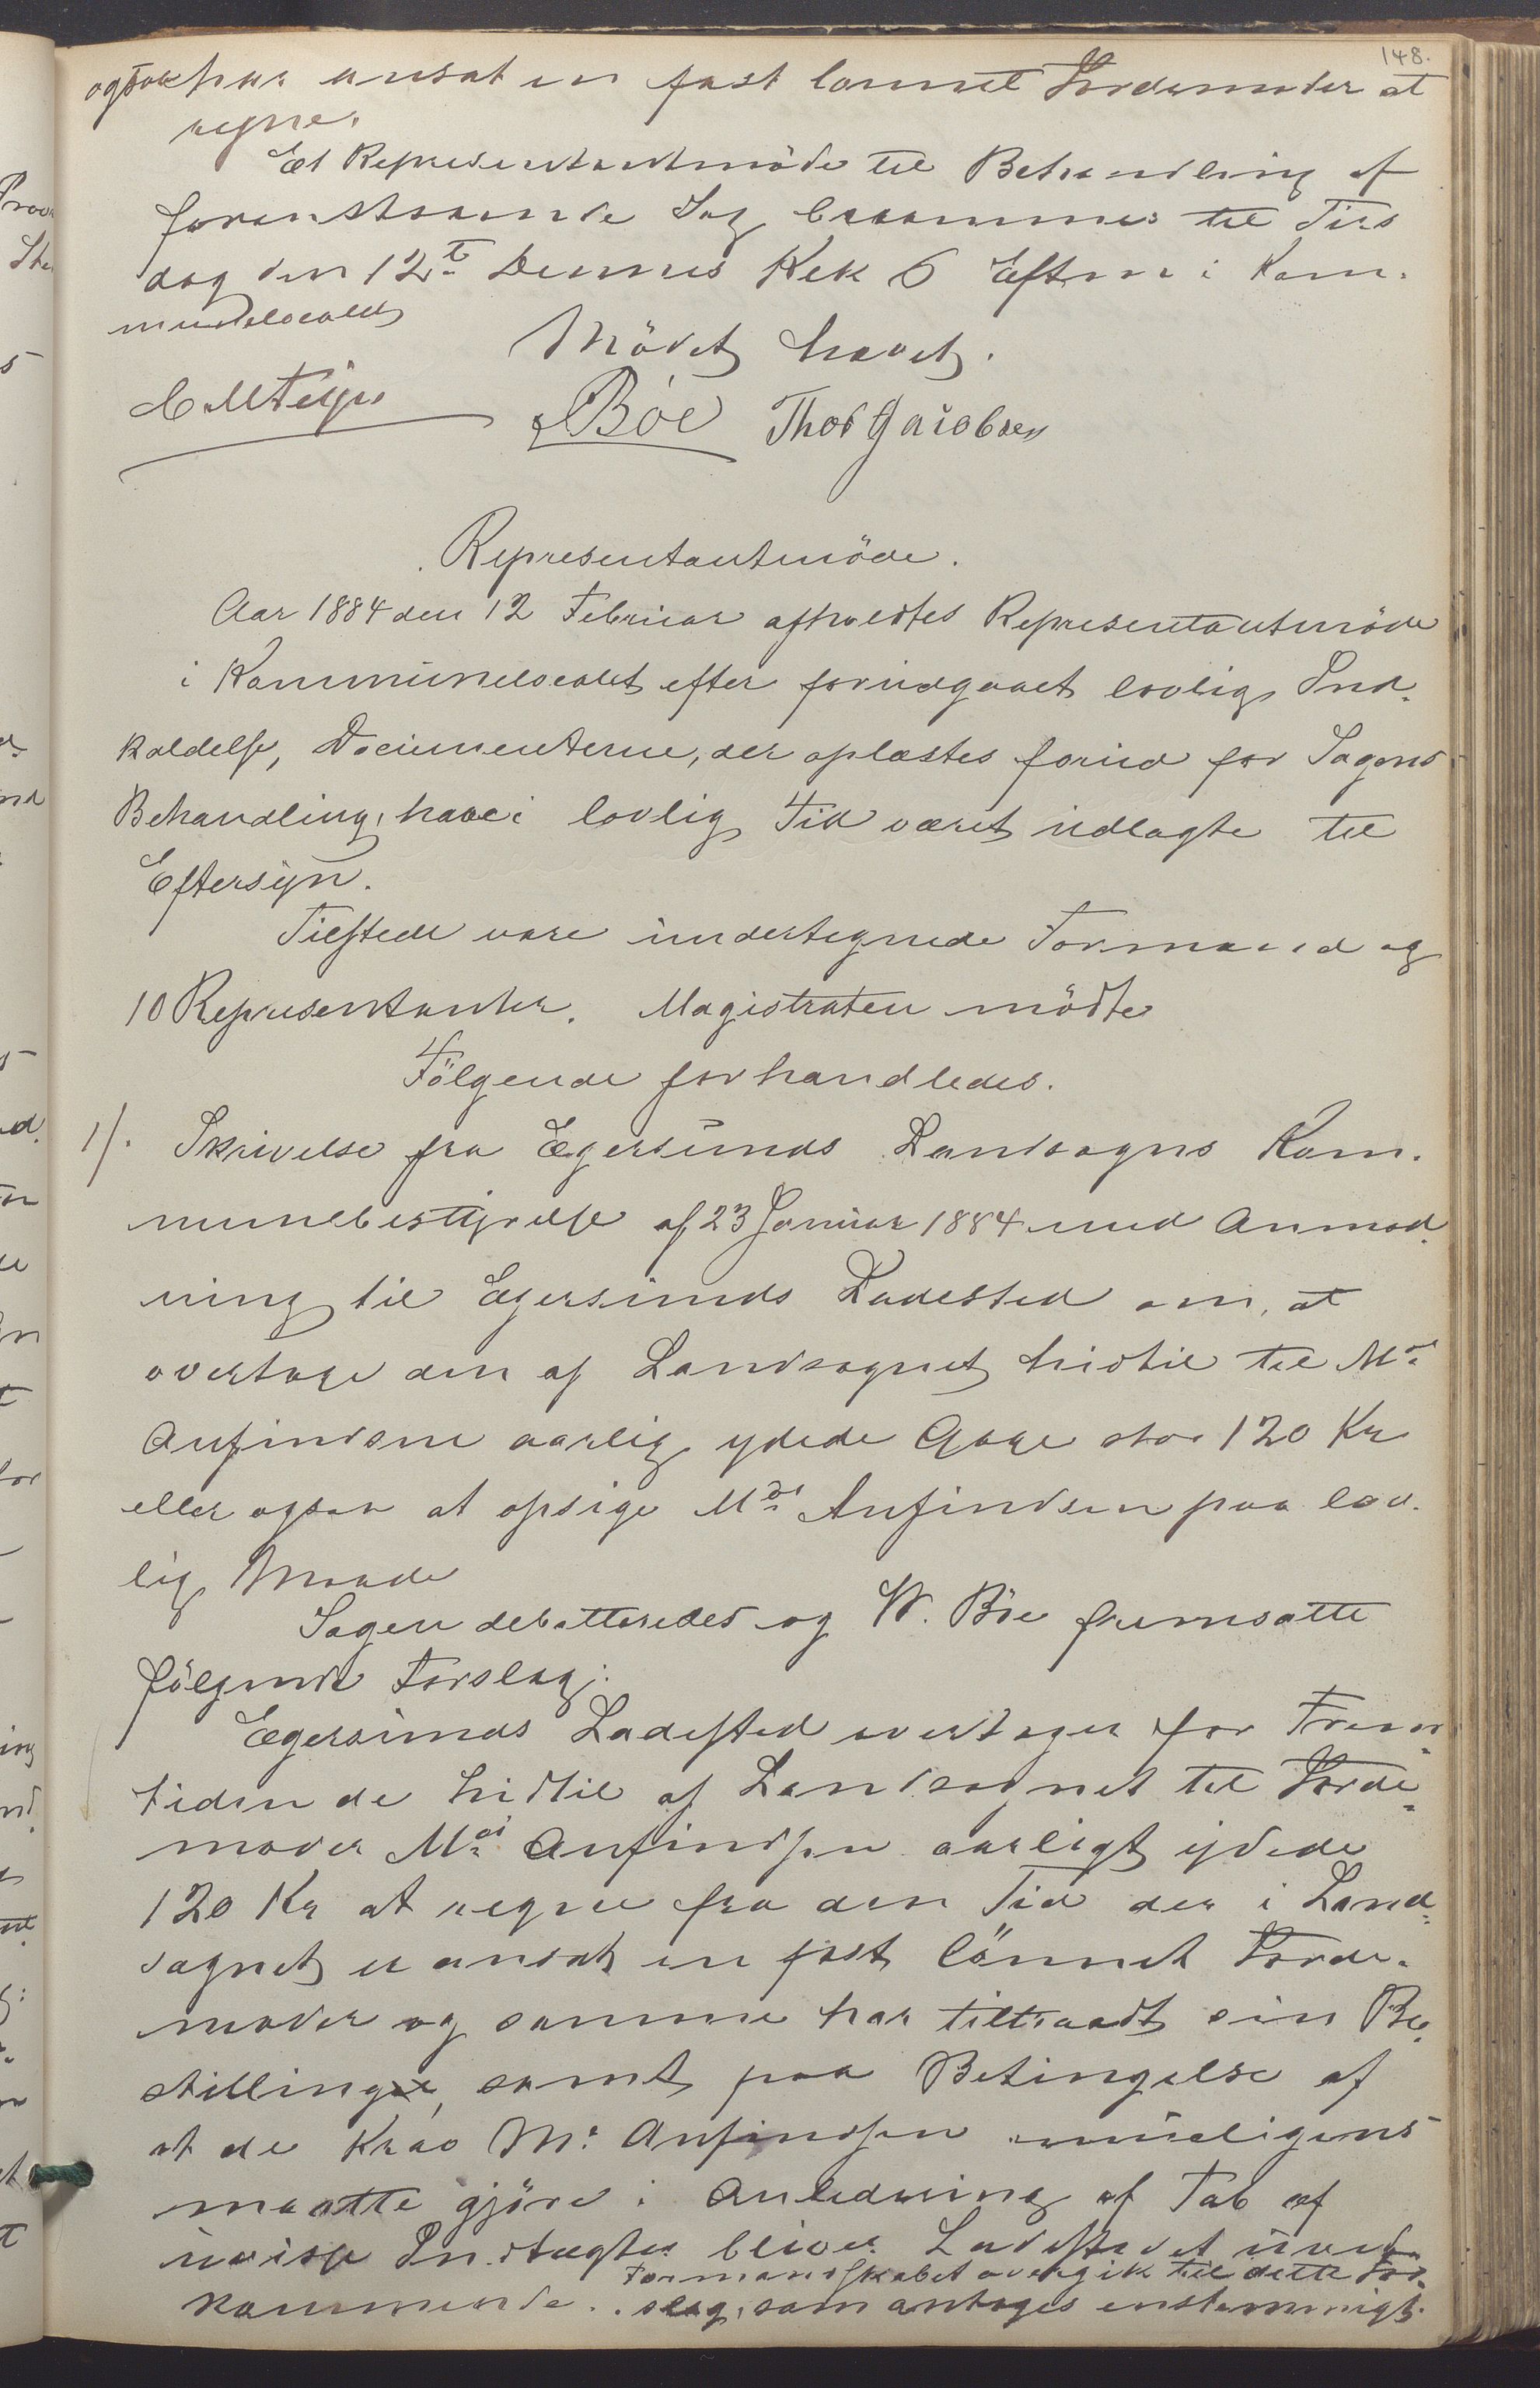 148.
ogsaa har ansat en fast lønnet Jordemoder at
regne.
Et Representantmöde til Behandling af
foranstaaende Sag berammes til Tirs
dag den 12te Dennes Klk 6 Eftm i Kom.
munelocalet
Mödet hævet.
Böe Thor Jacobsen
Representantmöde.
Aar 1884 den 12 Februar afholdtes Representantmöde
i Kommunelocalet efter forudgaaet lovlig Ind-
kaldelse, Documenterne, der oplæstes forud for Sagens
Behandling, have i lovlig Tid været udlagte til
Eftersyn.
Tilstede vare undertegnede Formand og
10 Representanter. Magistraten mödte
Fölgende forhandledes.
1/. Skrivelse fra Egersunds Landsogns Kom.
munebestyrelse af 23 Januar 1884 med Anmod.
ning til Egersunds Ladested om, at
overtage den af Landsognet hidtil til Md
Anfindsen aarlig ydede Gage stor 120 Kr
eller ogsaa at opsige Md Anfindsen paa lov.
lig Maade
Sagen debatteredes og W. Böe fremsatte
fölgende Forslag:
Egersunds Ladested overtager for Frem-
tiden de hidtil af Landsognet til Jorde-
moder Md Anfindsen aarligt ydede
120 Kr at regne fra den Tid der i Land-
sognet er ansat en fast lönnet Jorde.
moder og samme har tiltraadt sin Be.
stilling, samt paa Betingelse af
at de Krav Md Anfindsen muligens
maatte gjöre i Anledning af Tab af
uvisse Indtægter bliver Ladestedet uved-
kommende. . Formandskabet overgik til dette For-
slag, som antoges enstemmigt.